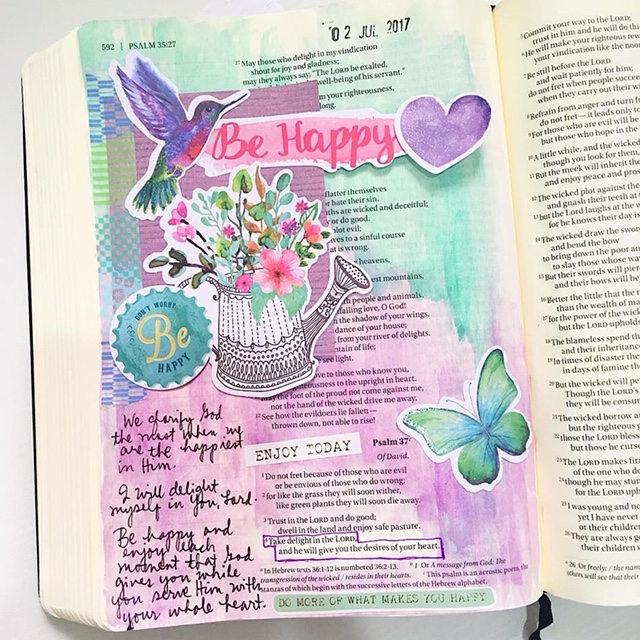 02 JUL 2017
592 | PSALM 35:27
27 May those who delight in my vindication
shout for joy and gladness;
may they always say, "The LORD be exalted,
well-being of his servant."
my righteousness,
long.
Be Happy
flatter themselves
hate their sin.
are wicked and deceitful;
or do good.
plot evil;
to a sinful course
is wrong.
heavens,
mountains,
people and animals.
failing love, O God!
the shadow of your wings.
of your house;
from your river of delights.
of life;
see light.
to those who know you,
to the upright in heart.
the foot of the proud not come against me,
nor the hand of the wicked drive me away.
12 See how the evildoers lie fallen—
thrown down, not able to rise!
DON'T WORRY
Be
HAPPY
We glorify God
the most when we
are the happiest
in Him.
I will delight
myself in you, Lord.
Be happy and
enjoy each
moment that God
gives you while
you serve Him with
your whole heart.
ENJOY TODAY
Psalm 37
Of David.
1 Do not fret because of those who are evil
or be envious of those who do wrong;
2 for like the grass they will soon wither,
like green plants they will soon die away.
3 Trust in the LORD and do good;
dwell in the land and enjoy safe pasture.
4 Take delight in the LORD,
and he will give you the desires of your heart.
a In Hebrew texts 36:1-12 is numbered 36:2-13. b 1 Or A message from God: The
transgression of the wicked / resides in their hearts. c This psalm is an acrostic poem, the
stanzas of which begin with the successive letters of the Hebrew alphabet.
DO MORE OF WHAT MAKES YOU HAPPY
5 Commit your way to the LORD;
trust in him and he will do this:
6 He will make your righteous
your vindication like the
7 Be still before the LORD
and wait patiently for him;
do not fret when people succeed
when they carry out their
8 Refrain from anger and turn
do not fret—it leads only to
9 For those who are evil will be
but those who hope in the
10 A little while, and the wicked
though you look for them,
11 But the meek will inherit the
and enjoy peace and
12 The wicked plot against the
and gnash their teeth at
13 but the Lord laughs at the
for he knows their day is
14 The wicked draw the sword
and bend the bow
to bring down the poor and
to slay those whose
15 But their swords will
and their bows will
16 Better the little that the
than the wealth of
17 for the power of the wicked
but the LORD upholds
18 The blameless spend
and their inheritance
19 In times of disaster
in days of famine
20 But the wicked will
Though the LORD's
they will be
21 The wicked borrow
but the righteous
22 those the LORD
but those he
23 The LORD makes
of the one who
24 though he may
for the LORD
25 I was young and
yet I have never
or their children
26 They are always
their children
a 26 Or freely; / the
others will see that